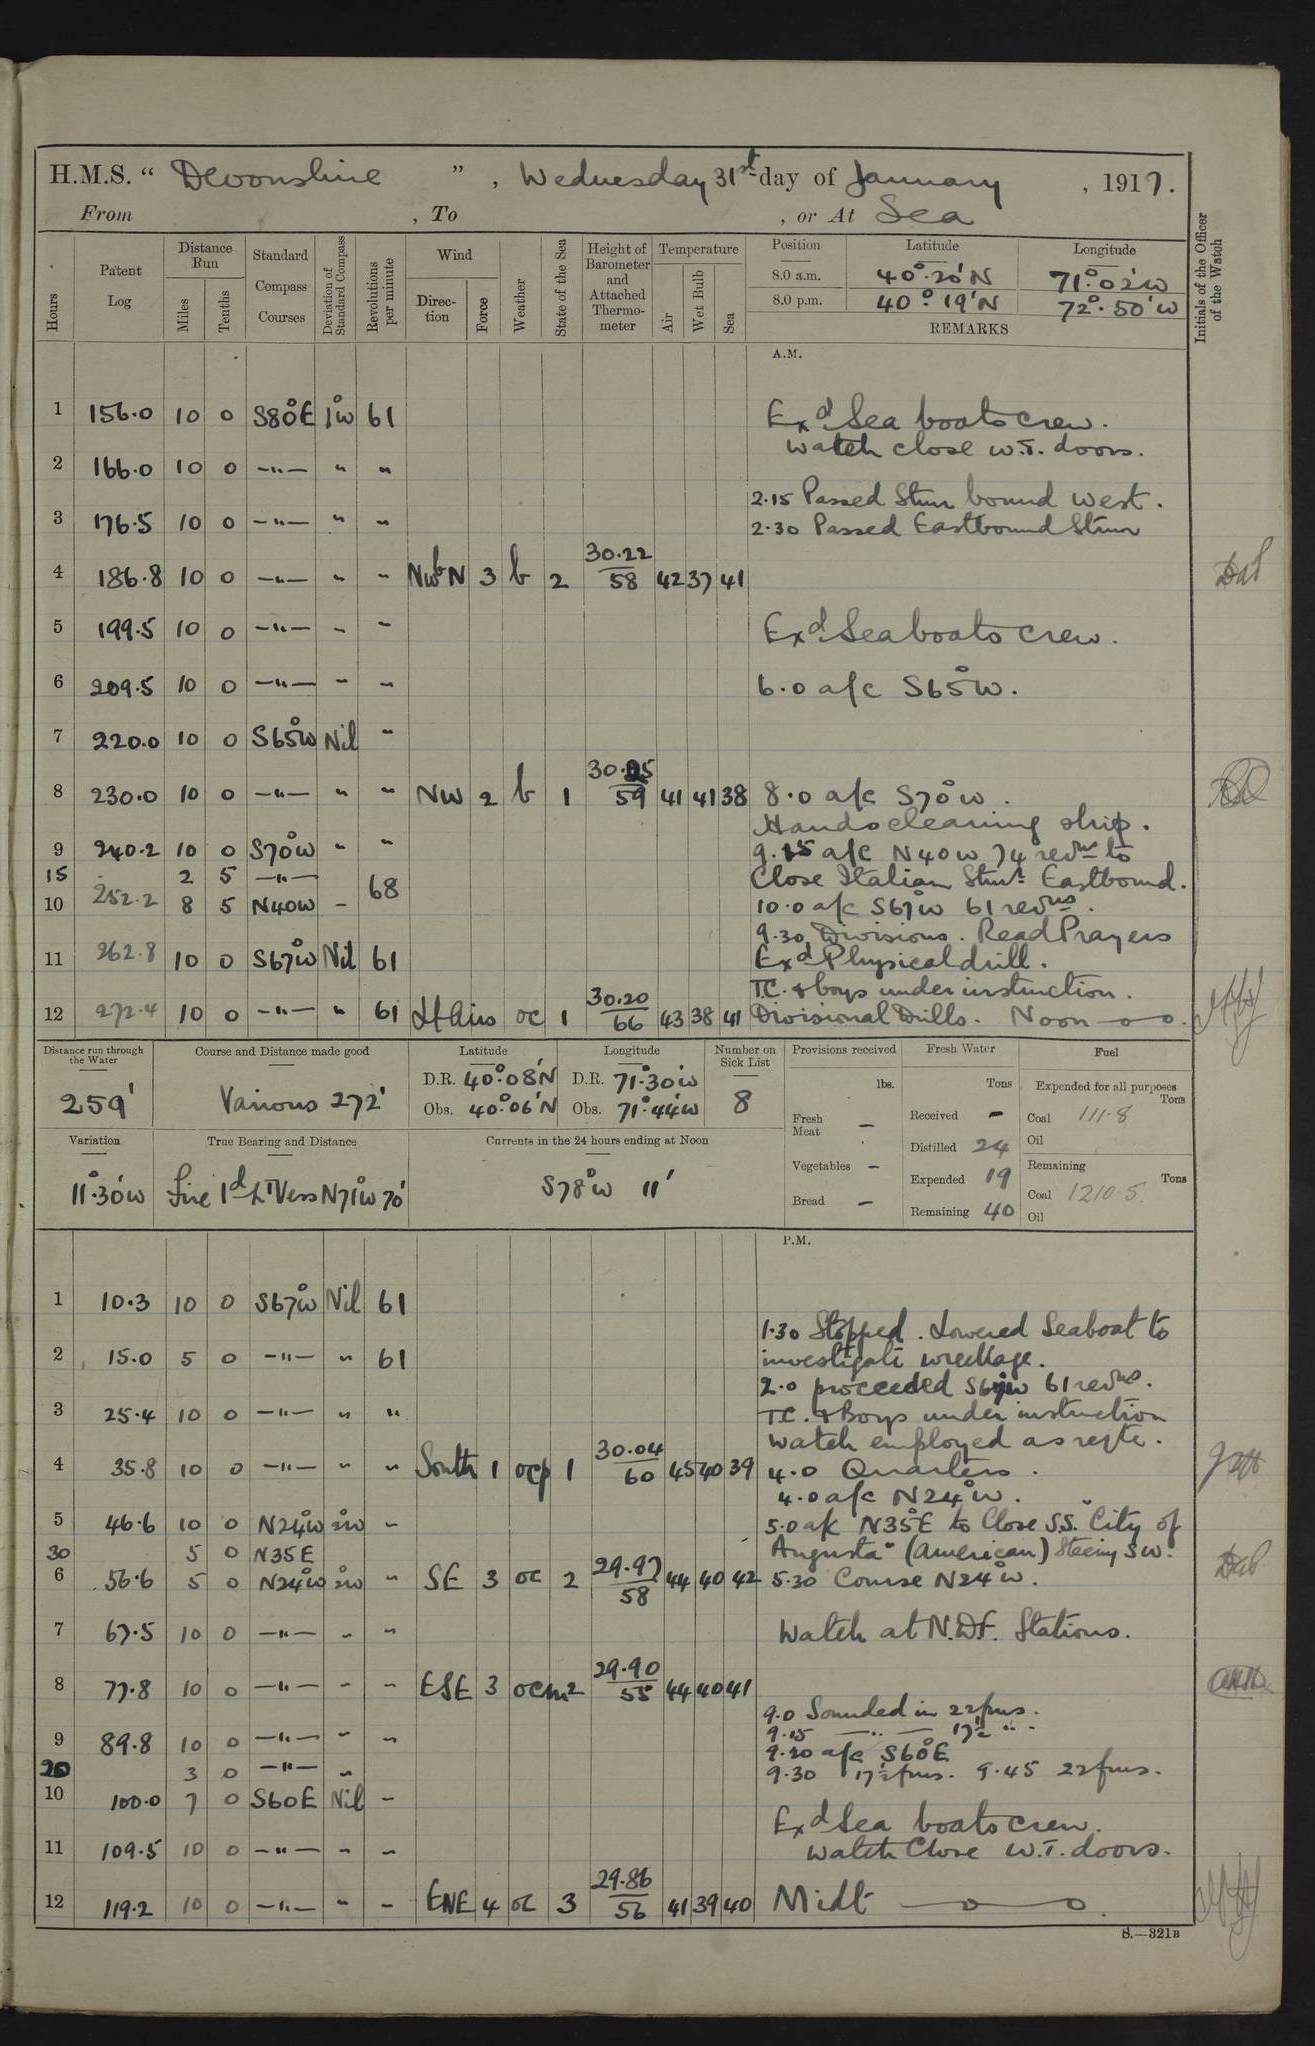 H.M.S. “ Devonshire ” , Wednesday 31st day of January , 1917.
From , To , or At Sea
Hours
Patent Log
Distance Run
Miles
Tenths
Standard Compass Courses
Deviation of Standard Compass
Revolutions per minute
Wind
Direction
Force
Weather
State of the Sea
Height of Barometer and Attached Thermometer
Temperature
Air
Wet Bulb
Sea
Position Latitude Longitude
8.0 a.m. 40°·20'N 71°·02'W
8.0 p.m. 40°·19'N 72°·50'W
REMARKS
Initials of the Officer of the Watch
A.M.
1 156.0 10 0 S80°E 1°W 61 Exd Sea boats crew.
Watch close W.T. doors.
2 166.0 10 0 —"— " "
2.15 Passed Stmr bound West.
3 176.5 10 0 —"— " " 2.30 Passed Eastbound Stmr
4 186.8 10 0 —"— " " NWbN 3 b 2 30.22 58 42 37 41
5 199.5 10 0 —"— " " Exd Sea boats crew.
6 209.5 10 0 —"— " " 6.0 a/c S65°W.
7 220.0 10 0 S65°W Nil "
8 230.0 10 0 —"— " " NW 2 b 1 59 41 41 38 8.0 a/c S70°W.
Hands cleaning ship.
9 240.2 10 0 S70°W " " 9.15 a/c N40W 74 revns to
15 2 5 —"— Close Italian Stmr Eastbound.
10 252.2 8 5 N40W - 68 10.0 a/c S67°W 61 revns.
9.30 Divisions. Read Prayers
11 262.8 10 0 S67°W Nil 61 Exd Physical drill.
T.C. & boys under instruction.
12 272.4 10 0 —"— " 61 Lt Airs oc 1 30.20 66 43 38 41 Divisional Drills. Noon
Distance run through the Water
259'
Course and Distance made good
Various 272'
Latitude
D.R. 40°·08'N
Obs. 40°·06'N
Longitude
D.R. 71°·30'W
Obs. 71°·44'W
Number on Sick List
8
Provisions received
lbs.
Fresh Meat —
Vegetables —
Bread —
Fresh Water
Tons
Received -
Distilled 24
Expended 19
Remaining 40
Fuel
Expended for all purposes
Tons
Coal 111.8
Oil
Remaining
Tons
Coal 1210.5
Oil
Variation
11°·30'W
True Bearing and Distance
Fire Id Lt Vess N71°W 70'
Currents in the 24 hours ending at Noon
S78°W 11'
P.M.
1 10.3 10 0 S67°W Nil 61
1.30 Stopped. Lowered Seaboat to
2 15.0 5 0 —"— " 61 investigate wreckage.
2.0 proceeded S67W 61 revns.
3 25.4 10 0 —"— " " T.C. & Boys under instruction
Watch employed as reqte.
4 35.8 10 0 —"— " " South 1 ocp 1 30.04 60 45 40 39 4.0 Quarters.
4.0 a/c N24°W.
5 46.6 10 0 N24°W 2°W - 5.0 a/c N35°E to Close S.S. "City of
30 5 0 N35E Augusta" (American) Steering SW.
6 56.6 5 0 N24°W 2°W " SE 3 oc 2 29.97 58 44 40 42 5.30 Course N24°W.
7 67.5 10 0 —"— " " Watch at N.D.F. Stations.
8 77.8 10 0 —"— - - ESE 3 ocm 2 29.90 55 44 40 41
9.0 Sounded in 22 fms.
9 89.8 10 0 —"— " " 9.15 —"— 17½ "
9.20 a/c S60°E
20 3 0 —"— " 9.30 17½ fms. 9.45 22 fms.
10 100.0 7 0 S60E Nil -
Exd Sea boats crew.
11 109.5 10 0 —"— " " Watch Close W.T. doors.
12 119.2 10 0 —"— " - ENE 4 oc 3 29.86 56 41 39 40 Midt
S.—321B